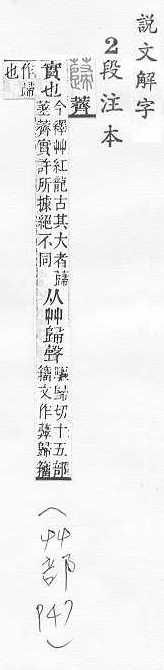 說文解字
2段注本
蘬 薺
實也 今釋艸紅龍古其大者蘬
蘬薺實許所據絕不同
从艸歸聲 驅歸切十五部
籒文作 歸籒
作 也
(艸部
P47)